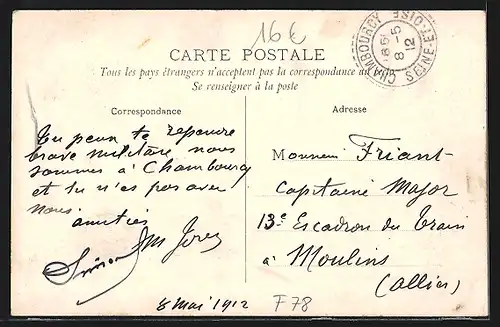 16€
CARTE POSTALE
Tous les pays étrangers n'acceptent pas la correspondance au
Se renseigner à la poste
CHAMBOURCY
8-5
12
SEINE-ET-OISE
Correspondance
Tu peux te
brave militaire nous
sommes à Chambourcy
et tu n'es pas avec
nous
amitiés
8 Mai 1912
Adresse
Monsieur Friant
Capitaine Major
13e Escadron du Train
à Moulins
(Allier)
F78